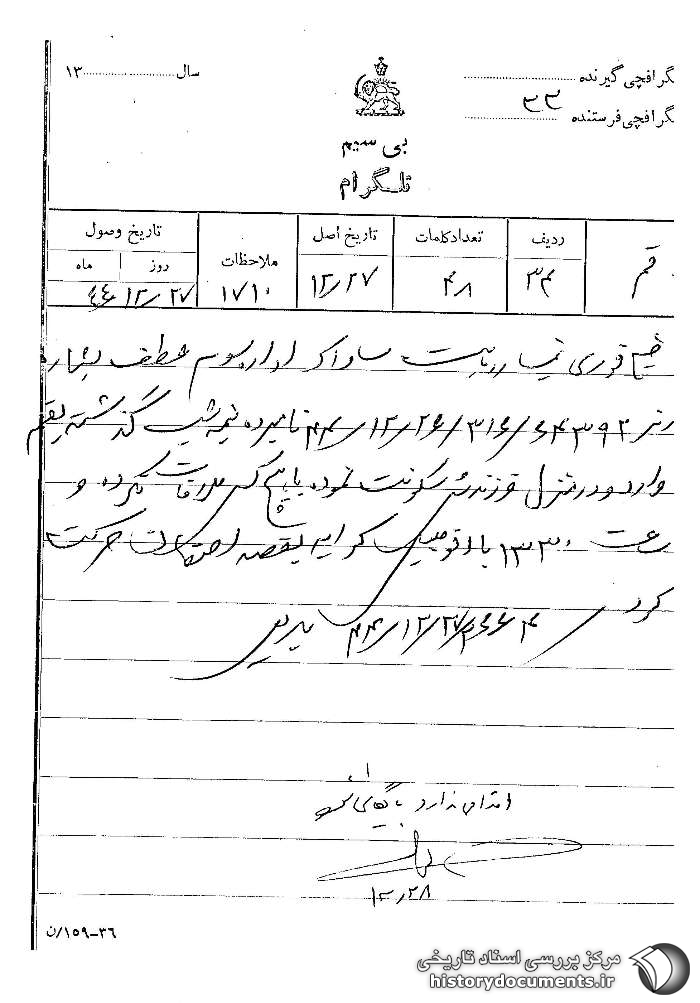 تلگرافچی گیرنده ........................
سال ........................ ۱۳
تلگرافچی فرستنده ۳۳
بی سیم
تلگرام
قم
ردیف
۳۴
تعداد کلمات
۴۸
تاریخ اصل
۱۲/۲۷
ملاحظات
۱۷۱۰
تاریخ وصول
روز ماه
۴۴/۱۲/۲۷
فوری تیمسار ریاست ساواک اداره سوم عطف بشماره
رمز ۶۴۳۹۲/۳۱۶/۲۶/۱۲/۴۴ نامبرده نیمه شب گذشته بقم
وارد و در منزل فرزندش سکونت نموده با هیچ کس ملاقات نکرده و
ساعت ۱۳۳۰ با اتومبیل کرایه بقصد حرکت
کرد
۲۶۶۴/۲۷/۱۲/۴۴
اقدامی ندارد بایگانی شود
۱۲/۲۸
۳۶-۱۵۹/ن
مرکز بررسی اسناد تاریخی
historydocuments.ir